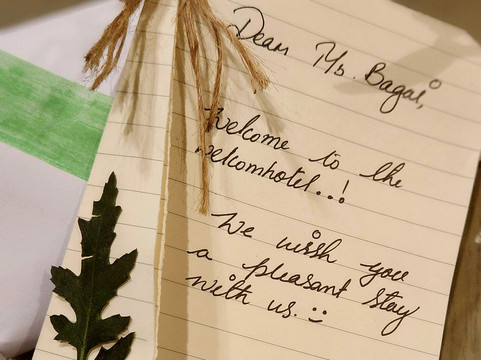 Dear Ms. Bagai,
Welcome to the
Welcomhotel...!
We wish you
a pleasant stay
with us. :)